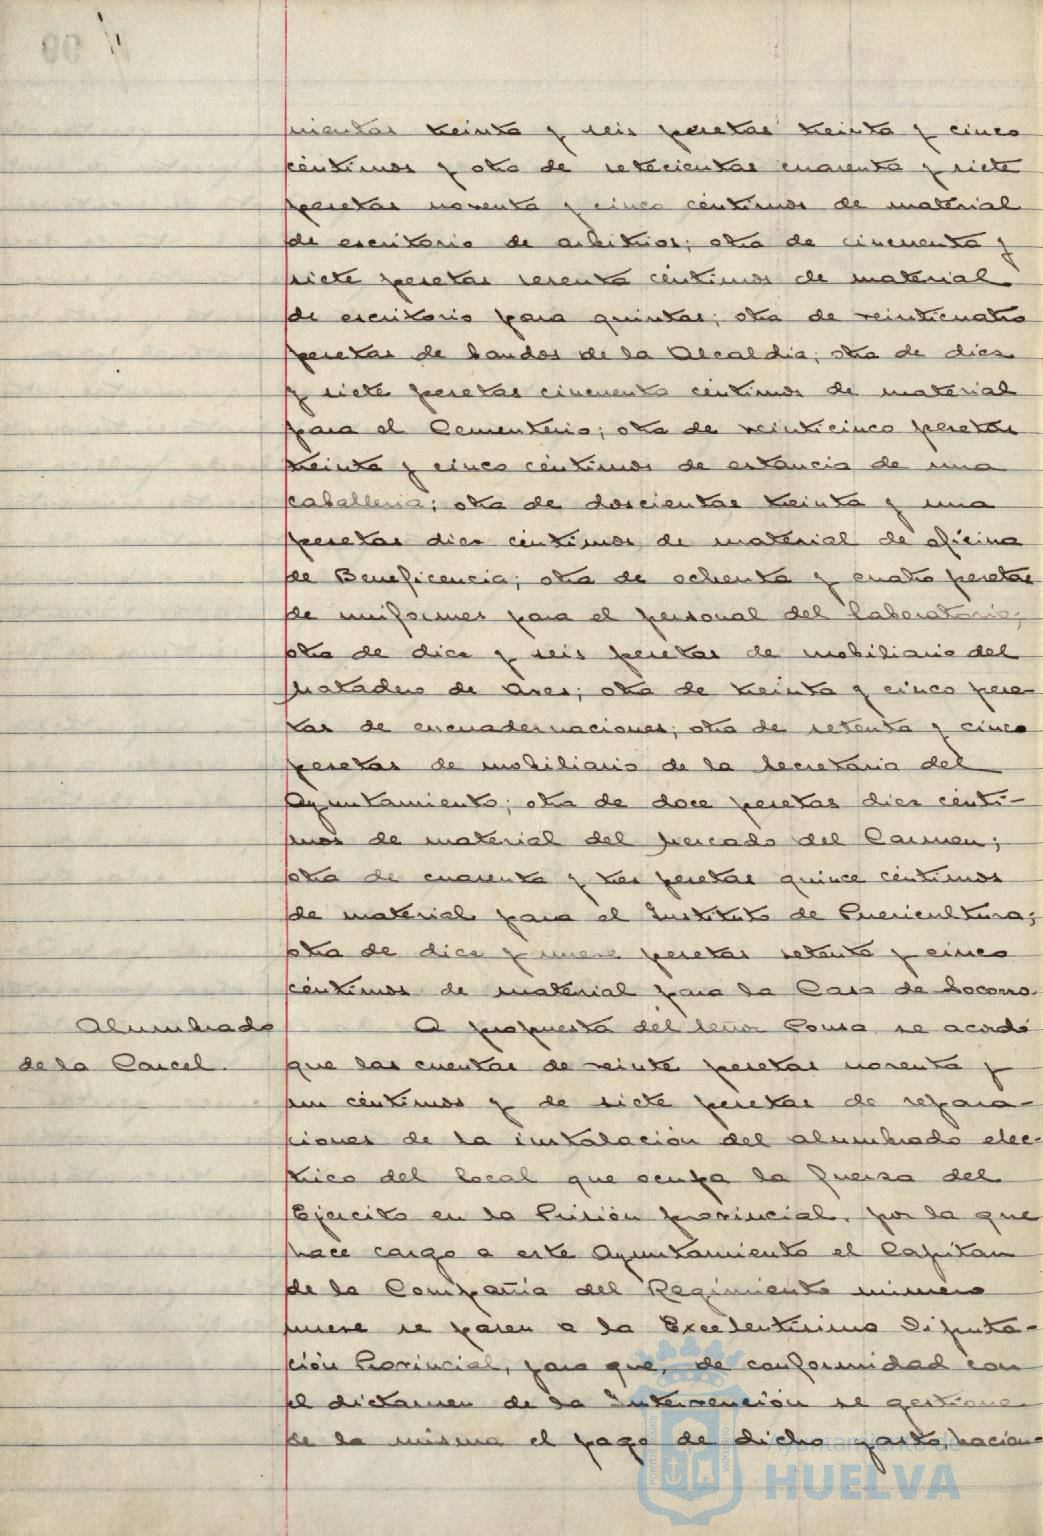 nientas treinta y seis pesetas treinta y cinco
céntimos y otra de setecientas cuarenta y siete
pesetas noventa y cinco céntimos de material
de escritorio de arbitrios; otra de cincuenta y
siete pesetas sesenta céntimos de material
de escritorio para quintas; otra de veinticuatro
pesetas de bandos de la Alcaldia; otra de diez
y siete pesetas cincuenta céntimos de material
para el Cementerio; otra de veinticinco pesetas
treinta y cinco céntimos de estancia de una
caballeria; otra de doscientas treinta y una
pesetas diez céntimos de material de oficina
de Beneficencia; otra de ochenta y cuatro pesetas
de uniformes para el personal del Laboratorio;
otra de diez y seis pesetas de mobiliario del
Matadero de Aves; otra de treinta y cinco pese-
tas de encuadernaciones; otra de setenta y cinco
pesetas de mobiliario de la Secretaria del
Ayuntamiento; otra de doce pesetas diez cénti-
mos de material del Mercado del Carmen;
otra de cuarenta y tres pesetas quince céntimos
de material para el Instituto de Puericultura;
otra de diez y nueve pesetas setenta y cinco
céntimos de material para la Casa de Socorro.
Alumbrado
de la Carcel.
A propuesta del Señor Pousa se acordó
que las cuentas de veinte pesetas noventa y
un céntimos y de siete pesetas de repara-
ciones de la instalación del alumbrado elec-
trico del local que ocupa la fuerza del
Ejercito en la Prisión provincial, por la que
hace cargo a este Ayuntamiento el Capitan
de la Compañia del Regimiento número
nueve se pasen a la Excelentisima Diputa-
ción Provincial, para que, de conformidad con
el dictamen de la Intervención se gestione
de la misma el pago de dicho gasto, hacien-
Ayuntamiento de
HUELVA